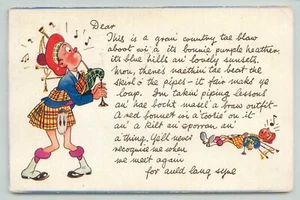 Dear
This is a gran' country tae blaw
aboot wi' a' its bonnie purple heather,
its blue hills an' lovely sunsets.
Mon, there's naethin' tae beat the
skirl o' the pipes - it fair maks ye
loup. I'm takin' piping lessons
an' hae bocht masel' a braw outfit -
A red bonnet wi' a tootie on it
an' a kilt an' sporran an'
a' thing. Ye'll never
recognise me when
we meet again
for auld lang syne